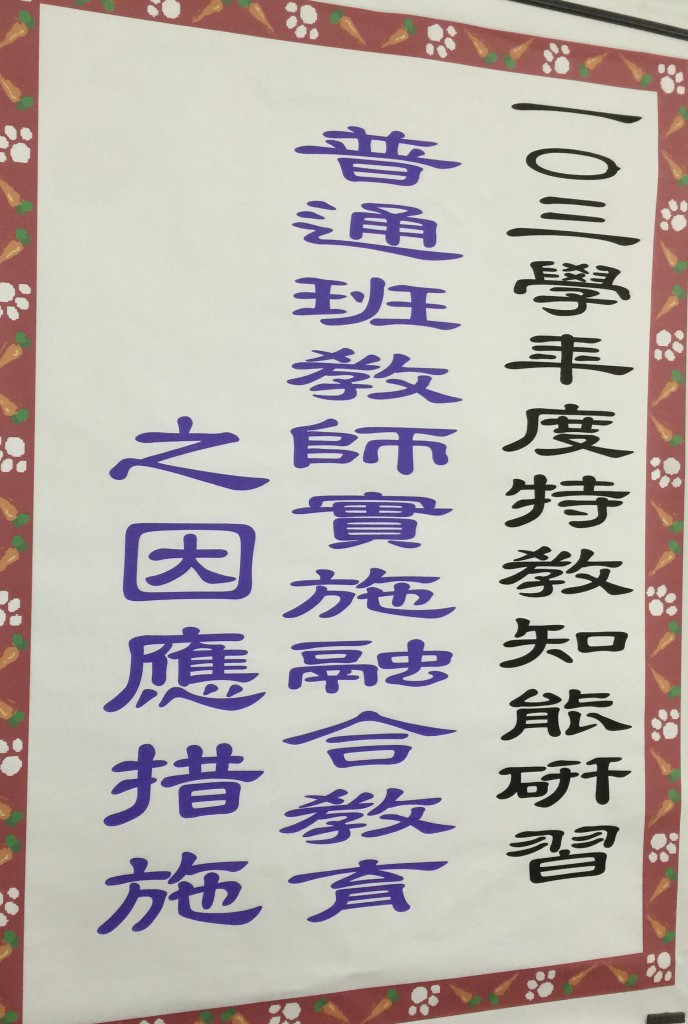 一〇三學年度特教知能研習
普通班教師實施融合教育
之因應措施